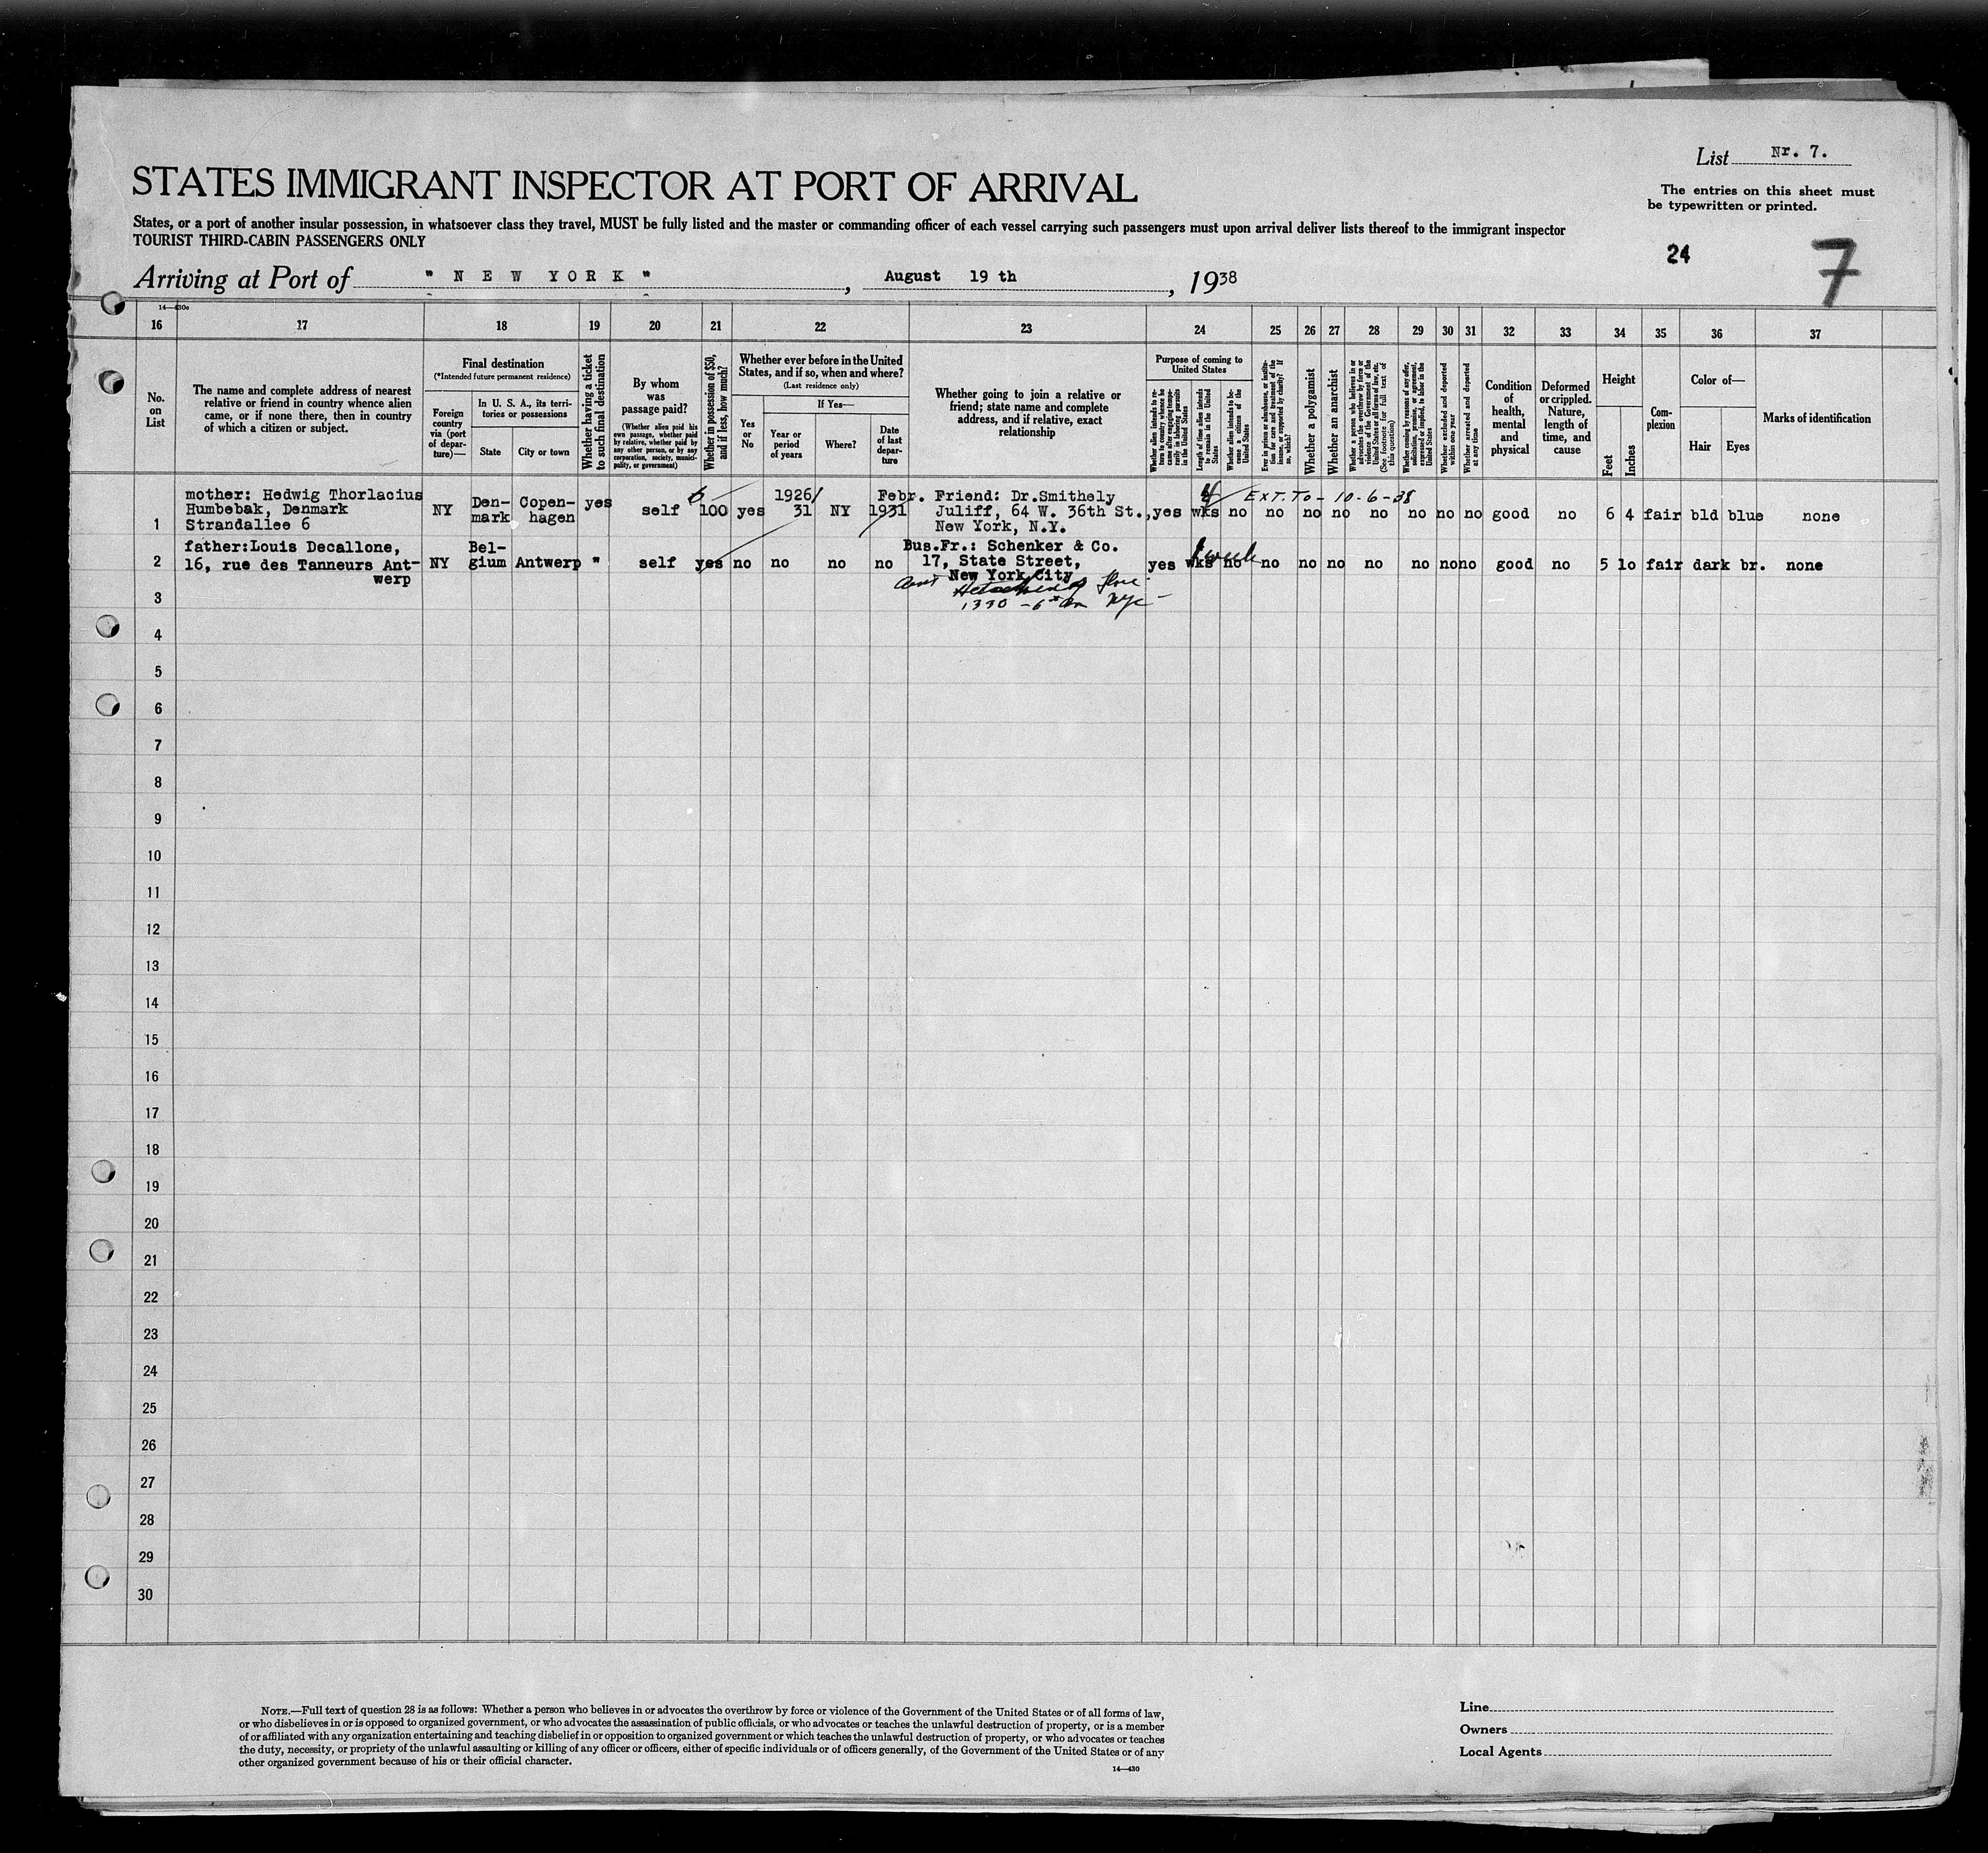 List Nr. 7.
STATES IMMIGRANT INSPECTOR AT PORT OF ARRIVAL
The entries on this sheet must
be typewritten or printed.
States, or a port of another insular possession, in whatsoever class they travel, MUST be fully listed and the master or commanding officer of each vessel carrying such passengers must upon arrival deliver lists thereof to the immigrant inspector
TOURIST THIRD-CABIN PASSENGERS ONLY
24
7
Arriving at Port of " N E W Y O R K ", August 19 th, 1938
14—430e
16 17 18 19 20 21 22 23 24 25 26 27 28 29 30 31 32 33 34 35 36 37
No.
on
List
The name and complete address of nearest
relative or friend in country whence alien
came, or if none there, then in country
of which a citizen or subject.
Final destination
(*Intended future permanent residence)
Foreign
country
via (port
of depar-
ture)—
In U. S. A., its terri-
tories or possessions
State
City or town
Whether having a ticket
to such final destination
By whom
was
passage paid?
(Whether alien paid his
own passage, whether paid
by relative, whether paid by
any other person, or by any
corporation, society, munici-
pality, or government)
Whether in possession of $50,
and if less, how much?
Whether ever before in the United
States, and if so, when and where?
(Last residence only)
Yes
or
No
If Yes—
Year or
period
of years
Where?
Date
of last
depar-
ture
Whether going to join a relative or
friend; state name and complete
address, and if relative, exact
relationship
Purpose of coming to
United States
Whether alien intends to re-
turn to country whence he
came after engaging tempo-
rarily in laboring pursuits
in the United States
Length of time alien intends
to remain in the United
States
Whether alien intends to be-
come a citizen of the
United States
Ever in prison or almshouse, or institu-
tion for care and treatment of the
insane, or supported by charity? If
so, which?
Whether a polygamist
Whether an anarchist
Whether a person who believes in or
advocates the overthrow by force or
violence of the Government of the
United States or all forms of law, etc.
(See footnote for full text of
this question)
Whether coming by reasons of any offer,
solicitation, promise, or agreement,
expressed or implied, to labor in the
United States
Whether excluded and deported
within one year
Whether arrested and deported
at any time
Condition
of
health,
mental
and
physical
Deformed
or crippled.
Nature,
length of
time, and
cause
Height
Feet
Inches
Com-
plexion
Color of—
Hair
Eyes
Marks of identification
mother: Hedwig Thorlacius
Humbebak, Denmark
Strandallee 6
1 NY Den-
mark Copen-
hagen yes self 100 yes 1926/
31 NY Febr.
1931 Friend: Dr.Smithely
Juliff, 64 W. 36th St.,
New York, N.Y.
yes 4 wks no EXT. TO - 10-6-38
no no no no no no no good no 6 4 fair bld blue none
father:Louis Decallone,
16, rue des Tanneurs Ant-
werp
2 NY Bel-
gium Antwerp " self yes no no no no Bus.Fr.: Schenker & Co.
17, State Street,
New York City
1370 - 6th Av NYC
yes wks 1 week no no no no no no no no good no 5 10 fair dark br. none
3
4
5
6
7
8
9
10
11
12
13
14
15
16
17
18
19
20
21
22
23
24
25
26
27
28
29
30
NOTE.—Full text of question 28 is as follows: Whether a person who believes in or advocates the overthrow by force or violence of the Government of the United States or of all forms of law,
or who disbelieves in or is opposed to organized government, or who advocates the assassination of public officials, or who advocates or teaches the unlawful destruction of property, or is a member
of or affiliated with any organization entertaining and teaching disbelief in or opposition to organized government or which teaches the unlawful destruction of property, or who advocates or teaches
the duty, necessity, or propriety of the unlawful assaulting or killing of any officer or officers, either of specific individuals or of officers generally, of the Government of the United States or of any
other organized government because of his or their official character.
14—430
Line
Owners
Local Agents